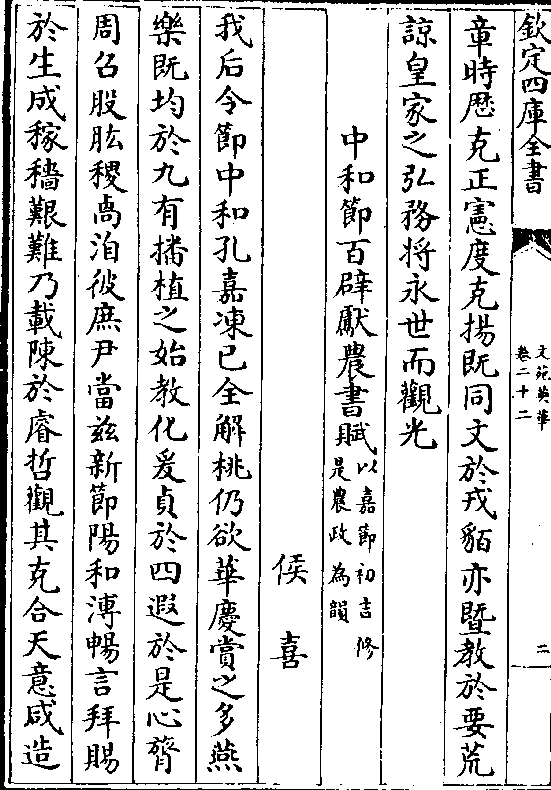 欽定四庫全書
文苑英華
卷二十二
二
章時歴克正憲度克揚既同文於戎貊亦暨教於要荒
諒皇家之弘務將永世而觀光
中和節百辟獻農書賦以嘉節初吉修
是農政為韻
侯喜
我后令節中和孔嘉凍已全解桃仍欲華慶賞之多燕
樂既均於九有播植之始教化爰貞於四遐於是心膂
周召股肱稷卨洎彼庶尹當兹新節陽和溥暢言拜賜
於生成稼穡艱難乃載陳於睿哲觀其克合天意咸造